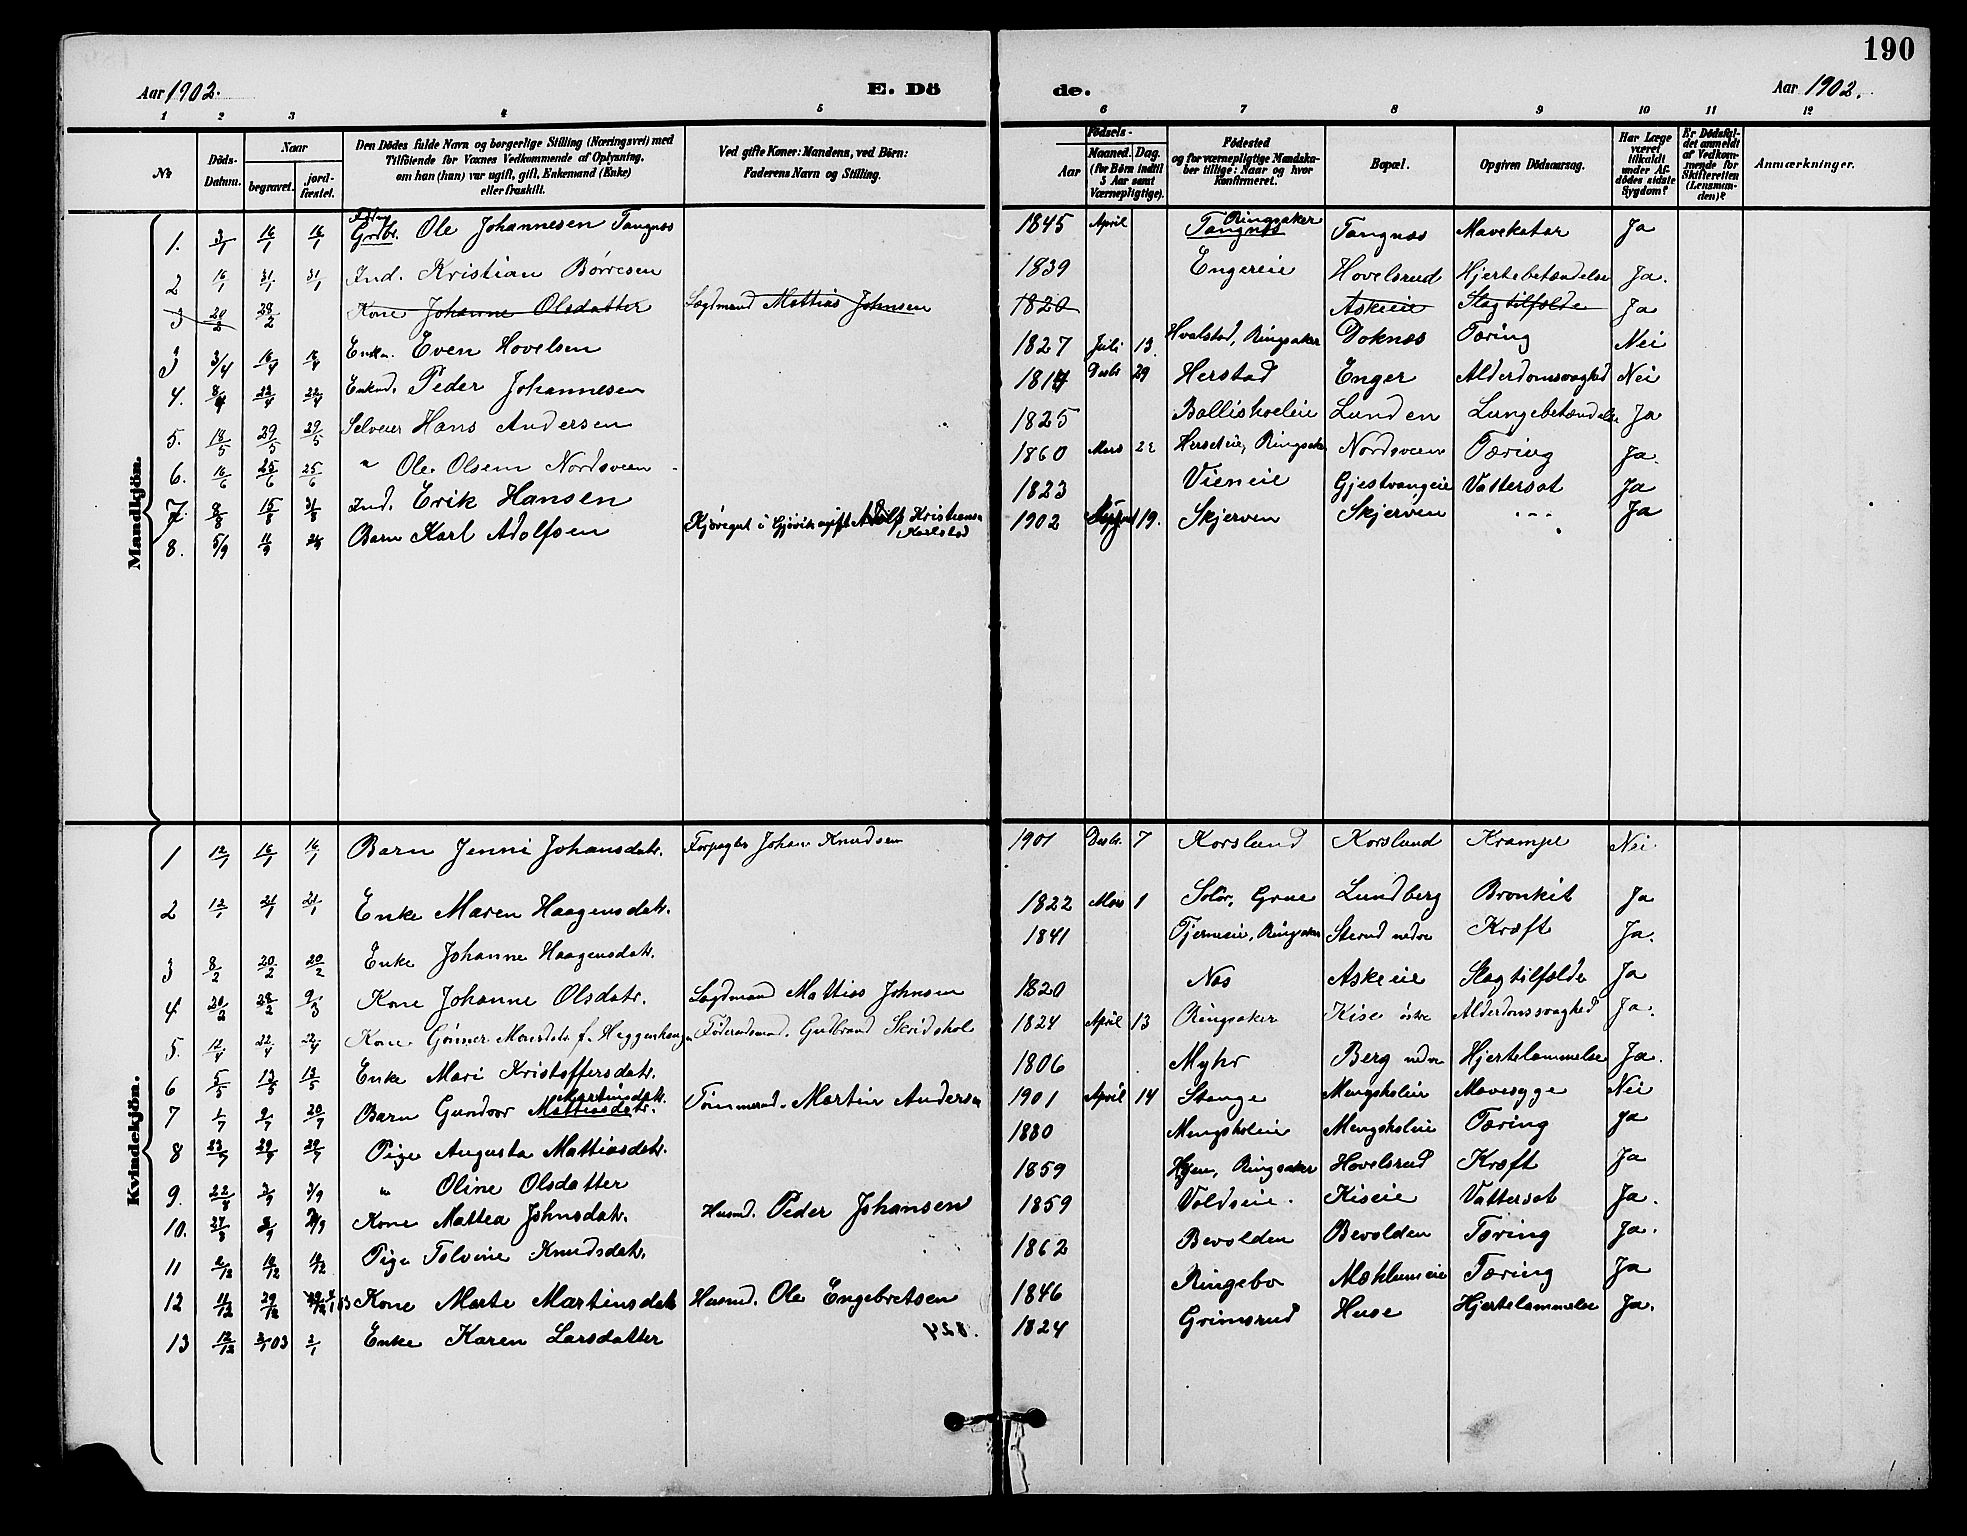 190
Aar 1902.
E. Dö
de.
Aar 1902.
1 2 3 4 5 6 7 8 9 10 11 12
№
Döds-Datum.
Naar
begravet.
jord-fæstet.
Den Dödes fulde Navn og borgerlige Stilling (Næringsvei) med
Tilföiende for Voxnes Vedkommende af Oplysning,
om han (hun) var ugift, gift, Enkemand (Enke)
eller fraskilt.
Ved gifte Koner: Mandens, ved Börn:
Faderens Navn og Stilling.
Födsels-
Aar
Maaned. Dag.
(for Börn indtil
5 Aar samt
Værnepligtige).
Födested
og for værnepligtige Mandska-
ber tillige: Naar og hvor
Konfirmeret.
Bopæl.
Opgiven Dödsaarsag.
Har Læge
været
tilkaldt
under Af-
dödes sidste
Sygdom?
Er Dödsfal-
det anmeldt
af Vedkom-
mende for
Skifteretten
(Lensman-
den)?
Anmærkninger.
Mandkjön.
1. 3/1 16/1 16/1 Grdbr. Ole Johannesen Tangnæs 1845 April Ringsaker Tangnæs Tangnæs Mavekatar Ja
2 16/1 31/1 31/1 Ind. Kristian Børresen 1839 Engereie Hovelsrud Hjertebetændelse Ja.
3 20/2 28/2 Kone Johanne Olsdatter Sagdmand Mattias Johnsen 1820 Askeeie Slagtilfælde Ja
3 3/4 16/4 16/4 Enkm. Even Hovelsen 1827 Juli 13. Hvalstad, Ringsaker Doknæs Tæring Nei
4. 8/4 22/4 22/4 Enkmd. Peder Johannesen 1817 Desbr 29 Herstad Enger Alderdomssvaghed Nei
5. 18/5 29/5 29/5 Selveier Hans Andersen 1825 Ballisholeie Lunden Lungebetændelse Ja
6. 16/6 25/6 25/6 " Ole Olsen Nordsveen 1860 Mars 22 Herseteie, Ringsaker Nordsveen Tæring Ja.
7 8/8 15/8 Ind. Erik Hansen 1823 Vieneie Gjestvangeie Vattersot Ja
8. 5/9 11/9 Barn Karl Adolfsen Kjøregut i Gjøvik ugift Adolf Kristiansen Karlstad 1902 August 19. Skjerven Skjerven " " " Ja
Kvindekjön.
1 12/1 16/1 16/1 Barn Jenni Johansdatr. Forpagter Johan Knudsen 1901 Desbr. 7 Korslund Korslund Krampe Nei.
2 12/1 21/1 21/1 Enke Maren Haagensdatr. 1822 Mars 1 Solør, Grue Lundberg Bronkit Ja
3 8/2 20/2 20/2 Enke Johanne Haagensdatr. 1841 Tjerneeie, Ringsaker Sterud nedre Kræft Ja.
4 20/2 28/2 9/3 Kone Johanne Olsdatr. Sagdmand Mattias Johnsen 1820 Næs Askeeie Slagtilfælde Ja
5. 12/4 22/4 22/4 Kone Gønner Monsdatr. f. Heggenhaugen Føderaadsmand. Gudbrand Skridshol 1824 April 13 Ringsaker Kise östre Alderdomssvaghed Ja.
6 5/5 13/5 13/5 Enke Mari Kristoffersdatr. 1806 Myhr Berg nedre Hjertelammelse Ja.
7 1/7 9/7 20/7 Barn Gundvor Mattiasdatr. Martinsdatr. Tömmermd. Martin Andersen 1901 April 14 Stange Mengsholeie Mavesyge Nei
8 23/7 29/7 29/7 Pige Augusta Mattiasdatr. 1880 Mengsholeie Mengsholeie Tæring Ja
9. 22/8 3/9 3/9 " Oline Olsdatter 1859 Hjem, Ringsaker Hovelsrud Kræft Ja
10. 27/8 Kone Mattea Johnsdatr. Husmd. Peder Johansen 1859 Voldseie Kiseie Vattersot Ja.
11 2/12 10/12 10/12 Pige Tolvine Knudsdatr. 1862 Bevolden Bevolden Tæring Ja.
12 11/12 29/12 Kone Marte Martinsdatr Husmd. Ole Engebretsen 1846 Ringebo Mæhlumeie Tæring Ja
13 19/12 2/1 03 2/1 Enke Karen Larsdatter 1824 Grimsrud Huse Hjertelammelse Ja.